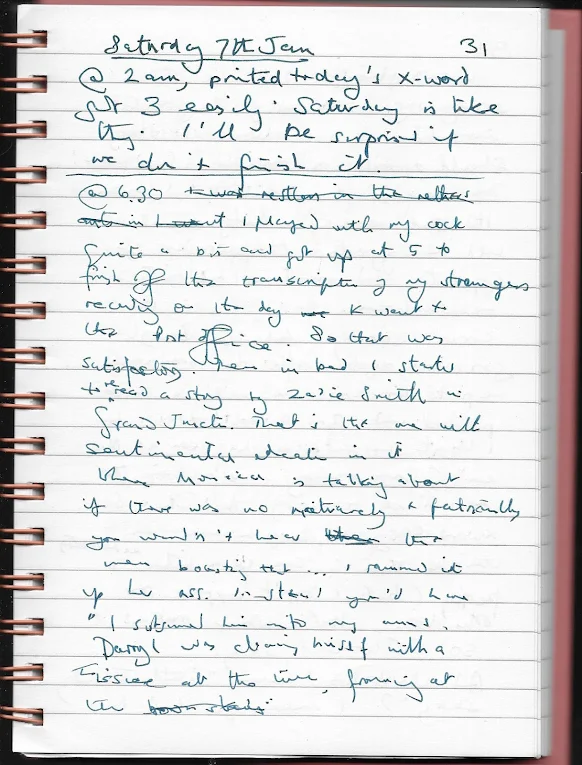 Saturday 7th Jan 31
@ 2am, printed today's X-word
got 3 easily. Saturday is like
this. I'll be surprised if
we don't finish it.
@ 6.30 in the
I played with my cock
quite a bit and got up at 5 to
finish off the transcription of my strangers
recording on the day K went to
the Post office. So that was
satisfactory. Then in bed I started
to read a story by Zadie Smith in
Grand . That is the one with
sentimental in it
where Monica is talking about
if there was no &
you wouldn't hear the
men boasting that... I rammed it
up her ass. Instead you'd have
"I subsumed him into my anus.
Darryl was cleaning himself with a
Tissue at the time, frowning at
the